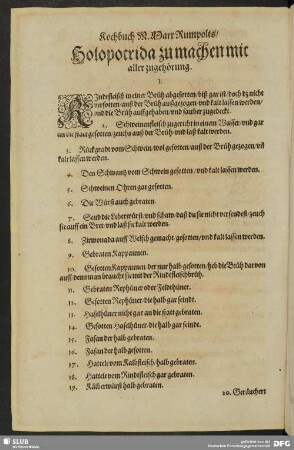 Kochbuch M. Marx Rumpolts/
Holopotrida zu machen mit
aller zugehörung.
1.
Rindtfleisch in einer Brüh abgesotten/ biß gar ist/ doch dz nicht
versotten/ auß der Brüh außgezogen/ vnd kalt lassen werden/
vnd die Brüh auffgehaben/ vnd sauber zugedeckt.
2. Schweinenfleisch zugericht in einem Wasser/ vnd gar
an die statt gesotten/ zeuchs auß der Brüh/ vnd laß kalt werden.
3. Rückgradt vom Schwein/ wol gesotten/ auß der Brüh gezogen/ vñ
kalt lassen werden.
4. Den Schwantz vom Schwein gesotten/ vnd kalt lassen werden.
5. Schweinen Ohren gar gesotten.
6. Die Würst auch gebraten.
7. Seud die Leberwürst/ vnd schaw/ daß du sie nicht versendest/ zeuch
sie auff ein Bret/ vnd laß sie kalt werden.
8. Zirwonada auff Welsch gemacht/ gesotten/ vnd kalt lassen werden.
9. Gebraten Kappaunen.
10. Gesotten Kappaunen/ der nur halb gesotten/ heb die Brüh darvon
auff/ denn man braucht sie mit der Rindtfleischbrüh.
11. Gebraten Rephüner oder Feldthüner.
12. Gesotten Rephüner/ die halb gar seindt.
13. Haselhüner nicht gar an die statt gebraten.
14. Gesotten Haselhüner/ die halb gar seindt.
15. Fasan der halb gebraten.
16. Fasan der halb gesotten.
17. Hattele vom Kalbfleisch/ halb gebraten.
18. Hattele vom Rindtfleisch gar gebraten.
19. Kälberwürst halb gebraten.
20. Geräuchert
SLUB
Wir führen Wissen.
gefördert von der
Deutschen Forschungsgemeinschaft
DFG